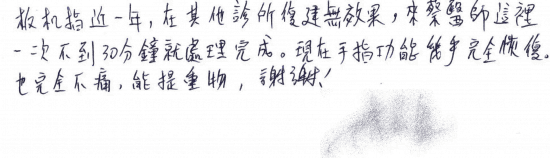 板机指近一年，在其他診所復建無效果，來蔡醫師這裡
一次不到30分鐘就處理完成。現在手指功能幾乎完全恢復。
也完全不痛，能提重物，謝謝！